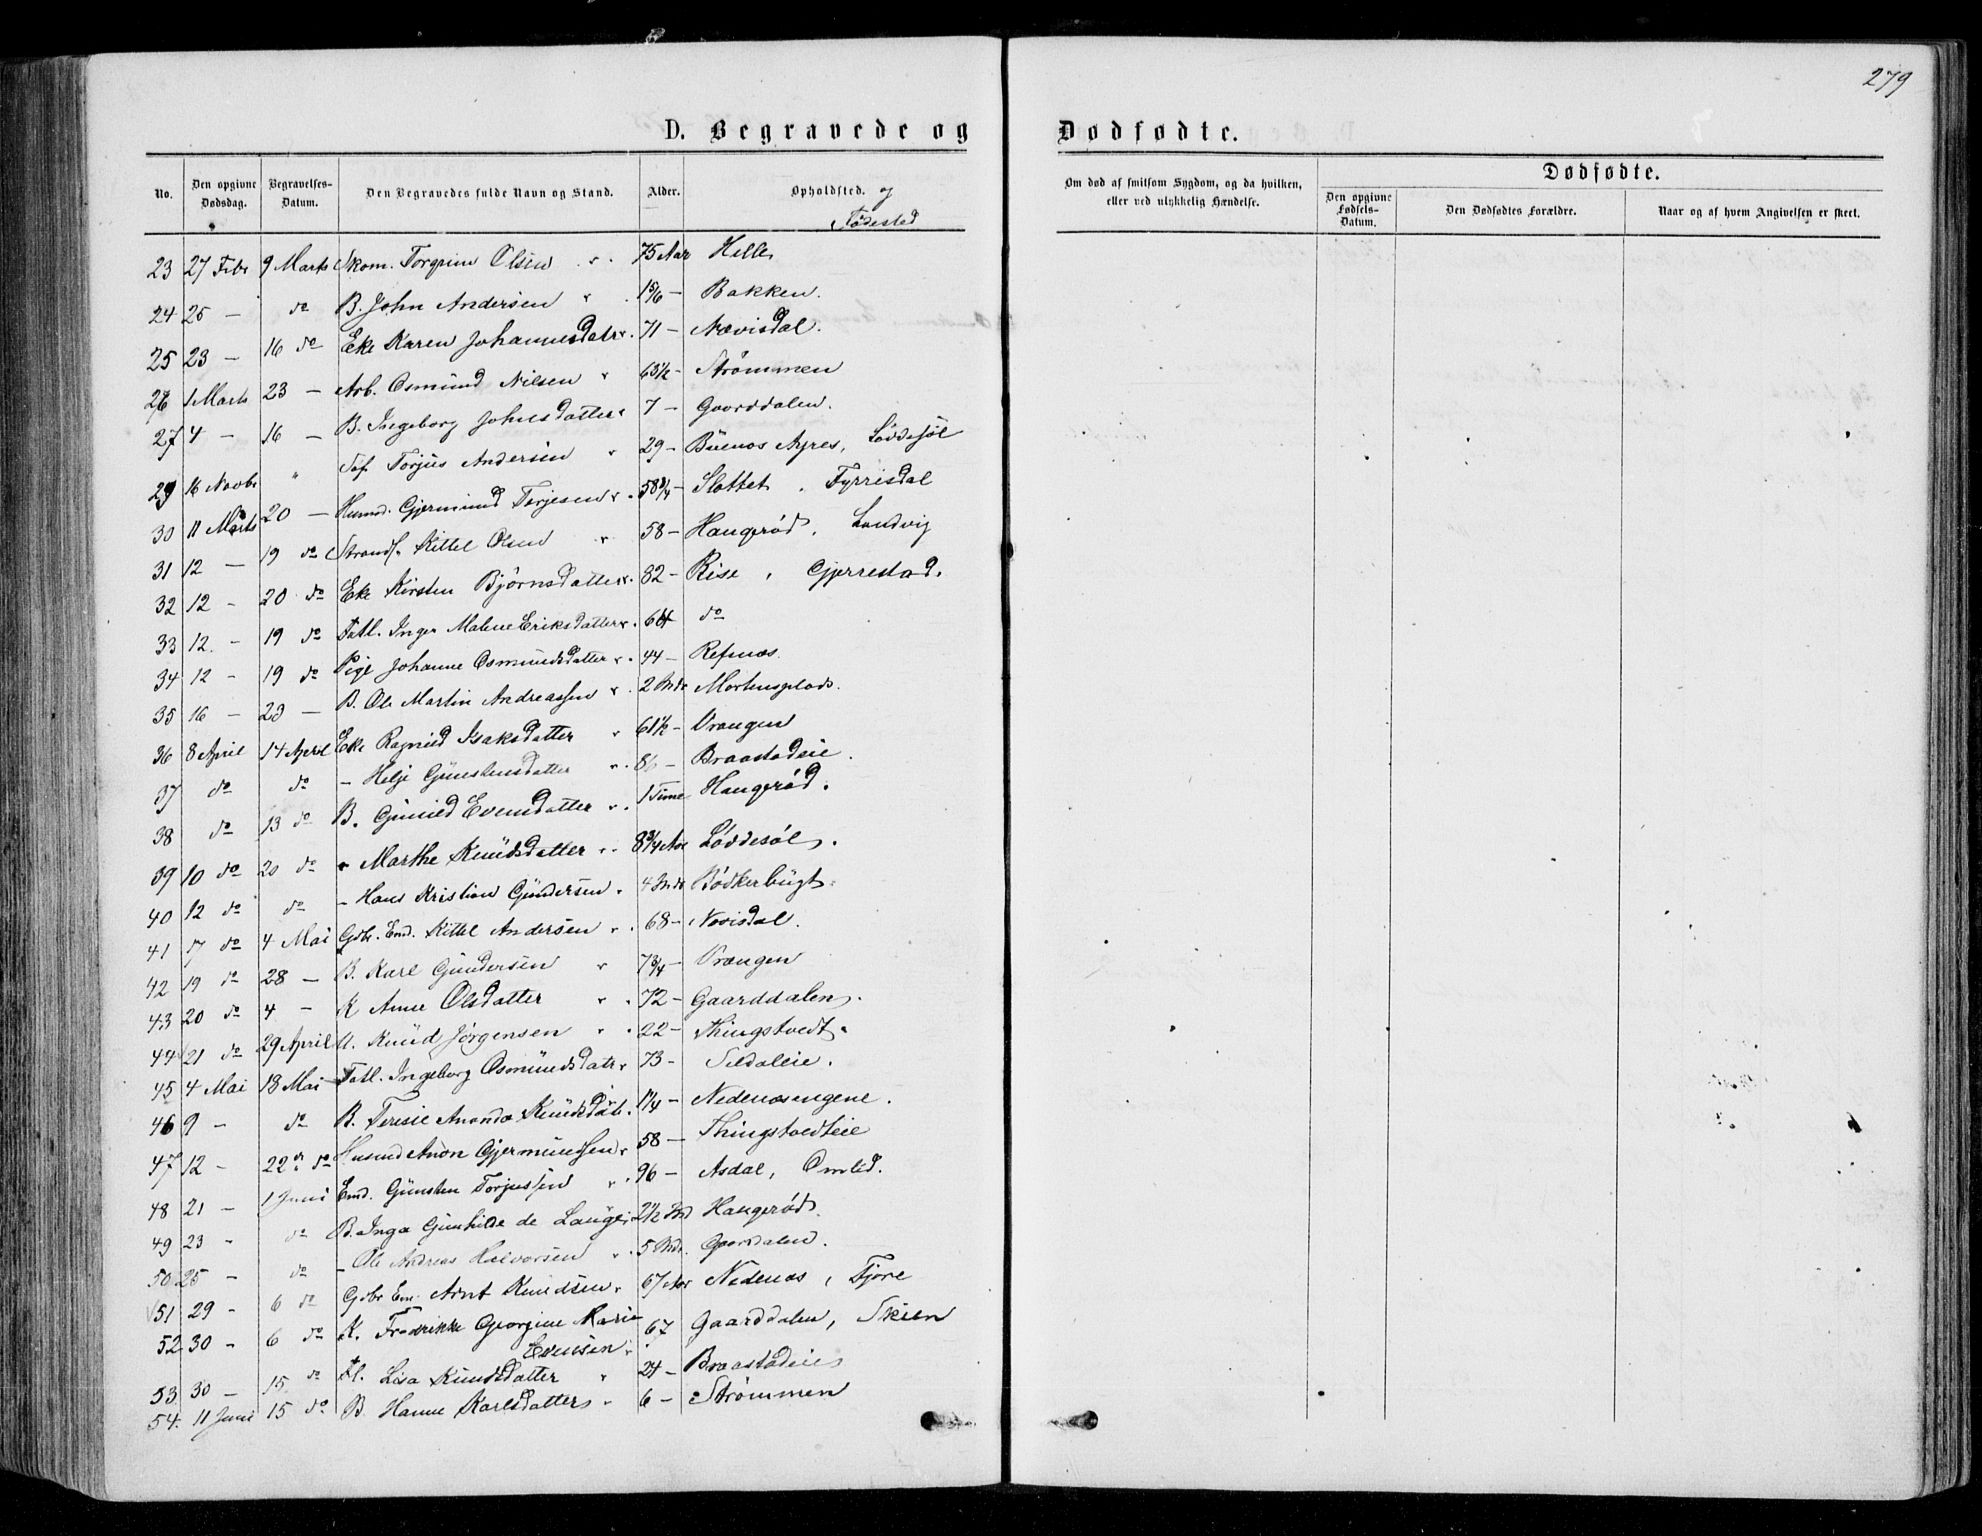 279
D. Begravede og Dødfødte.
No. Den opgivne Dødsdag. Begravelses-Datum. Den Begravedes fulde Navn og Stand. Alder. Opholdsted. og Fødested
Om død af smitsom Sygdom, og da hvilken, eller ved ulykkelig Hændelse. Dødfødte. Den opgivne Fødsels-Datum. Den Dødfødtes Forældre. Naar og af hvem Angivelsen er skeet.
23 27 Febr 9 Marts Skom. Torgrim Olsen 75 Aar Helle
24 25 — do B. John Andersen 1 5/6 — Bakken.
25 23 — 16 do Eke Karen Johannesdatr 71 — Nævisdal.
26 1 Marts 23 — Arb. Osmund Nilsen 63½ — Strømmen
27 4 — 16 — B. Ingeborg Johnsdatter 7 — Gaarddalen.
29 16 Novbr " Søf. Torjus Andersen 29 — Buenos Ayres, Løddesøl
30 11 Marts 20 — Husmd. Gjermund Torjesen 58¾ — Slottet, Fyrrisdal
31 12 — 19 do Strands. Kittel Olsen 58 — Haugerød, Landvig
32 12 — 20 do Eke Kirsten Bjørnsdatter 82 — Rise, Gjerrestad.
33 12. — 19 do Fatl. Inger Malene Eriksdatter 64 do
34 12 — 19 do Pige Johanne Osmundsdatter 44 — Refsnæs.
35 16 — 23 — B. Ole Martin Andreassen 2 Mdr Mortensplads.
36 8 April 14 April Eke Ragnild Isaksdatter 61½ — Vrangen
37 do do — Helje Gunstensdatter 86 — Braastadeie.
38 do 13 do B. Gunild Evensdatter 1 Time Haugerød.
39 10 do 20 do — Marthe Knudsdatter 8¾ Aar Løddesøl.
40 12 do do — Hans Kristian Gundersen 4 Mdr Bødkerbugt.
41 17 do 4 Mai Gbr. Emd. Kittel Andersen 68 — Nævisdal.
42 19 do 28 — B. Karl Gundersen 7¾ — Vrangen
43 20 do 4 — K Anne Olsdatter 72 — Gaarddalen.
44 21 do 29 April U. Knud Jørgensen 22 — Thingstvedt.
45 4 Mai 18 Mai Fatl. Ingeborg Osmundsdatr 73 — Sildaleie.
46 9 — do B. Teresie Amanda Knudsdatr. 1¼ — Nedenæsengene.
47 12 — 22 do Husmd Anon Gjermundsen 58 — Thingstvedteie
48 21 — 1 Juni Emd. Gunsten Torjussen 96 — Asdal, Omlid.
49 23 — do B. Inga Gunhilde de Lange 2½ Md Haugerød.
50 25 — do — Ole Andreas Halvorsen 5 Mdr. Gaarddalen.
51 29 — 6 do Gbr Em. Arnt Knudsen 67 Aar Nedenæs, Fjære
52 30 — 6 do K. Fredrikke Georgine Marie Evensen 67 Gaarddalen, Skien
53 30 — 15. do Fl. Lisa Knudsdatter 24 — Braastadeie
54. 11 Juni 15 do B. Hanne Karlsdatter 6 — Strømmen